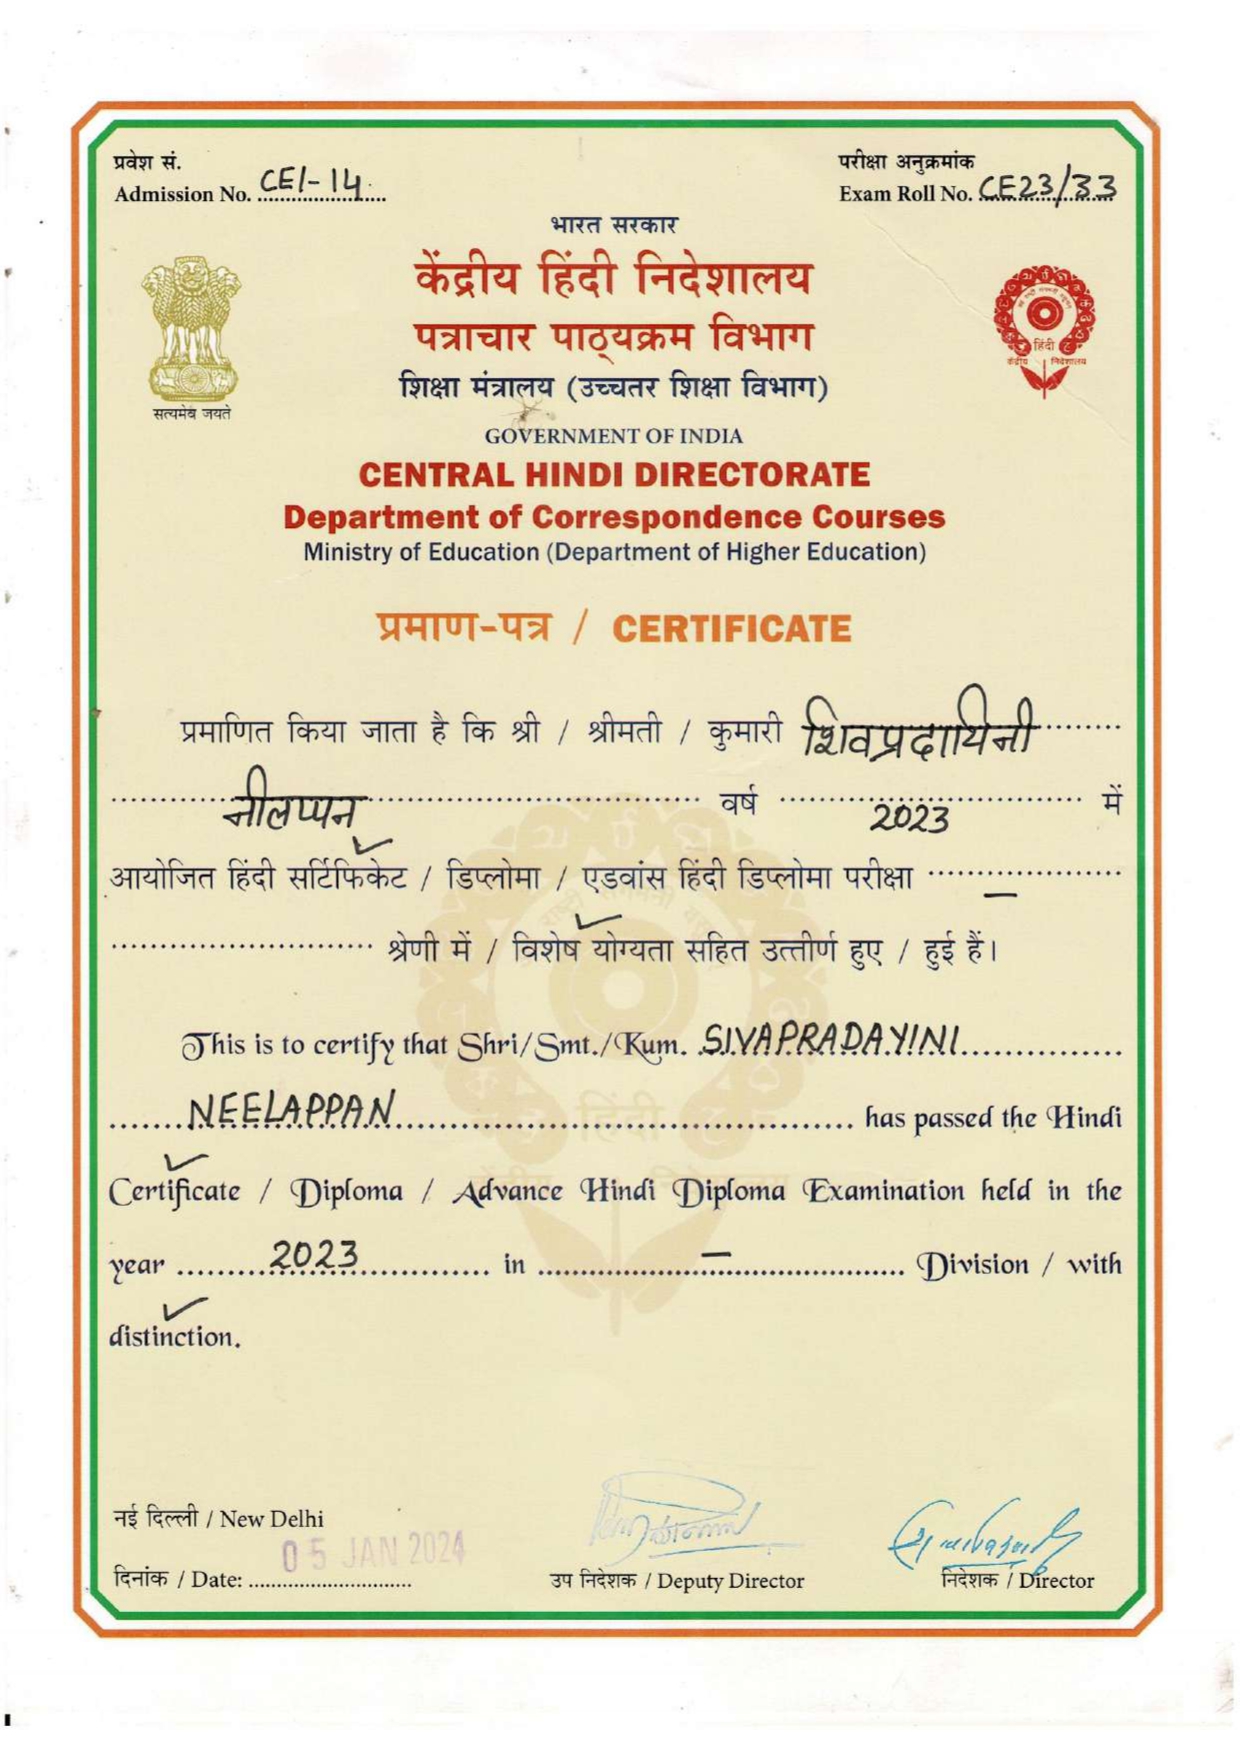 प्रवेश सं.
Admission No. CEI-14
परीक्षा अनुक्रमांक
Exam Roll No. CE23/33
भारत सरकार
केंद्रीय हिंदी निदेशालय
पत्राचार पाठ्यक्रम विभाग
शिक्षा मंत्रालय (उच्चतर शिक्षा विभाग)
सत्यमेव जयते
हिंदी
केंद्रीय निदेशालय
GOVERNMENT OF INDIA
CENTRAL HINDI DIRECTORATE
Department of Correspondence Courses
Ministry of Education (Department of Higher Education)
प्रमाण-पत्र / CERTIFICATE
प्रमाणित किया जाता है कि श्री / श्रीमती / कुमारी शिवप्रदायिनी
नीलप्पन वर्ष 2023 में
आयोजित हिंदी सर्टिफिकेट / डिप्लोमा / एडवांस हिंदी डिप्लोमा परीक्षा –
श्रेणी में / विशेष योग्यता सहित उत्तीर्ण हुए / हुई हैं।
This is to certify that Shri/Smt./Kum. SIVAPRADAYINI
NEELAPPAN has passed the Hindi
Certificate / Diploma / Advance Hindi Diploma Examination held in the
year 2023 in – Division / with
distinction.
नई दिल्ली / New Delhi
05 JAN 2024
दिनांक / Date:
उप निदेशक / Deputy Director
निदेशक / Director